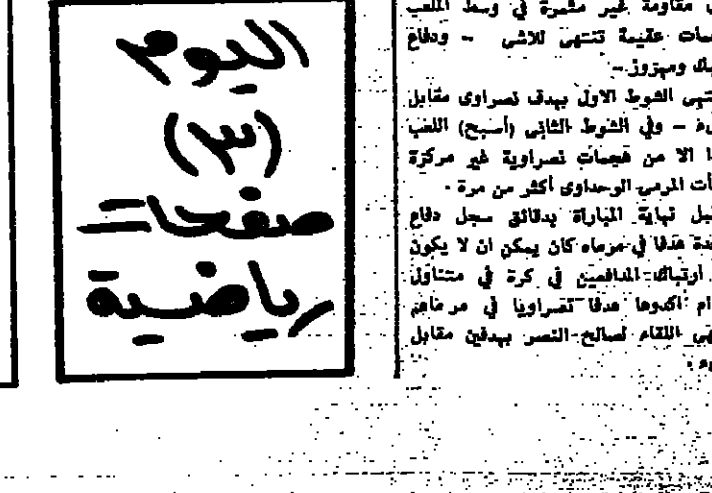 اليوم
(٣)
صفحات
رياضية
مقاومة غير مثمرة في وسط الملعب
عقيمة تنتهى للاشى – ودفاع
ومهزوز –
الشوط الاول بهدف نصراوى مقابل
– وفي الشوط الثانى (أسبح) اللعب
الا من هجمات نصراوية غير مركزة
المرمى الوحداوى أكثر من مرة .
نهاية المباراة بدقائق سجل دفاع
هدفا في مرماه كان يمكن ان لا يكون
أرتباك المدافعين في كرة في متناول
اكدوها هدفا نصراويا في مرماهم
اللقاء لصالح النصر بهدفين مقابل